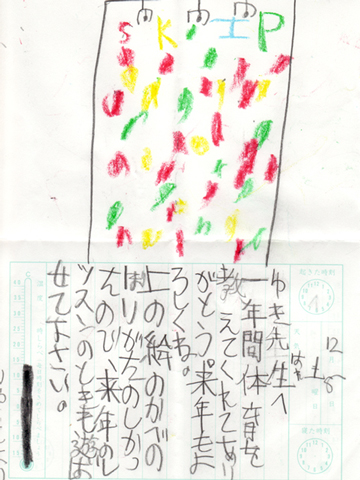 SKIP
起きた時刻
12
8
土
ゆき先生へ
一年間体育を
教えてくれてあり
がとう。来年もよ
ろしくね。
上の絵のかべの
ぼりがたのしかっ
たので、来年のレ
ッスンのときも遊ば
せて下さい。